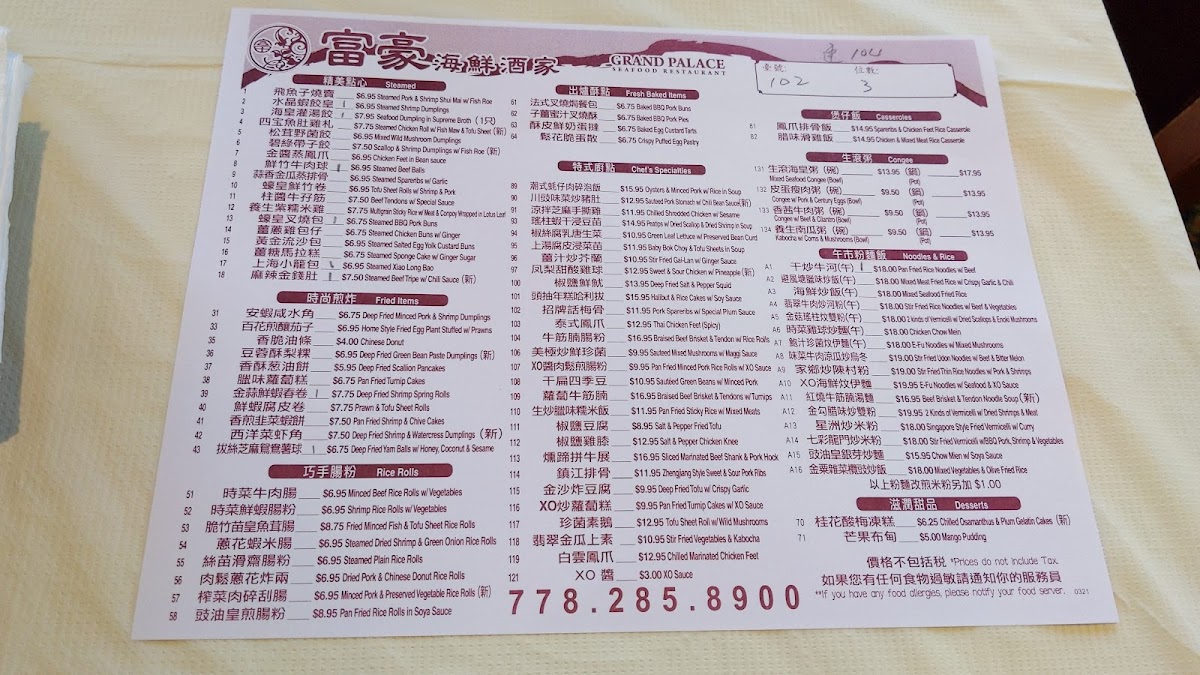 富豪海鮮酒家
GRAND PALACE
SEAFOOD RESTAURANT
104
臺號: 102
位數: 3
精美點心 Steamed
1 飛魚子燒賣 $6.95 Steamed Pork & Shrimp Shui Mai w/ Fish Roe
2 水晶蝦餃皇 $6.95 Steamed Shrimp Dumplings
3 海皇灌湯餃 $7.95 Seafood Dumpling in Supreme Broth (1只)
4 四宝魚肚雞札 $7.75 Steamed Chicken Roll w/ Fish Maw & Tofu Sheet (新)
5 松茸野菌餃 $6.95 Mixed Wild Mushroom Dumplings
6 碧綠帶子餃 $7.50 Scallop & Shrimp Dumplings w/ Fish Roe (新)
7 金醬蒸鳳爪 $6.95 Chicken Feet in Bean sauce
8 鮮竹牛肉球 $6.95 Steamed Beef Balls
9 蒜香金瓜蒸排骨 $6.95 Steamed Spareribs w/ Garlic
10 蠔皇鮮竹卷 $6.95 Tofu Sheet Rolls w/ Shrimp & Pork
11 柱醬牛孖筋 $7.50 Beef Tendons w/ Special Sauce
12 養生紫糯米雞 $7.75 Multigrain Sticky Rice w/ Meat & Conpoy Wrapped in Lotus Leaf
13 蠔皇叉燒包 $6.75 Steamed BBQ Pork Buns
14 薑蔥雞包仔 $6.75 Steamed Chicken Buns w/ Ginger
15 黃金流沙包 $6.95 Steamed Salted Egg Yolk Custard Buns
16 薑糖馬拉糕 $6.75 Steamed Sponge Cake w/ Ginger Sugar
17 上海小籠包 $6.95 Steamed Xiao Long Bao
18 麻辣金錢肚 $7.50 Steamed Beef Tripe w/ Chili Sauce (新)
時尚煎炸 Fried Items
31 安蝦咸水角 $6.75 Deep Fried Minced Pork & Shrimp Dumplings
33 百花煎釀茄子 $6.95 Home Style Fried Egg Plant Stuffed w/ Prawns
35 香脆油條 $4.00 Chinese Donut
36 豆蓉酥梨粿 $6.95 Deep Fried Green Bean Paste Dumplings (新)
37 香酥葱油餅 $5.95 Deep Fried Scallion Pancakes
38 臘味蘿蔔糕 $6.75 Pan Fried Turnip Cakes
39 金蒜鮮蝦春卷 $7.75 Deep Fried Shrimp Spring Rolls
40 鮮蝦腐皮卷 $7.75 Prawn & Tofu Sheet Rolls
41 香煎韭菜蝦餅 $7.50 Pan Fried Shrimp & Chive Cakes
42 西洋菜虾角 $7.50 Deep Fried Shrimp & Watercress Dumplings (新)
43 拔絲芝麻鴛鴦薯球 $6.75 Deep Fried Yam Balls w/ Honey, Coconut & Sesame
巧手腸粉 Rice Rolls
51 時菜牛肉腸 $6.95 Minced Beef Rice Rolls w/ Vegetables
52 時菜鮮蝦腸粉 $6.95 Shrimp Rice Rolls w/ Vegetables
53 脆竹苗皇魚茸腸 $8.75 Fried Minced Fish & Tofu Sheet Rice Rolls
54 蔥花蝦米腸 $6.95 Steamed Dried Shrimp & Green Onion Rice Rolls
55 絲苗滑齋腸粉 $6.95 Steamed Plain Rice Rolls
56 肉鬆蔥花炸兩 $6.95 Dried Pork & Chinese Donut Rice Rolls
57 榨菜肉碎刮腸 $6.95 Minced Pork & Preserved Vegetable Rice Rolls (新)
58 豉油皇煎腸粉 $8.95 Pan Fried Rice Rolls in Soya Sauce
出爐酥點 Fresh Baked Items
61 法式叉燒焗餐包 $6.75 Baked BBQ Pork Buns
62 子薑蜜汁叉燒酥 $6.75 Baked BBQ Pork Pies
63 酥皮鮮奶蛋撻 $6.75 Baked Egg Custard Tarts
64 鬆花脆蛋散 $6.75 Crispy Puffed Egg Pastry
特式廚點 Chef's Specialties
89 潮式蚝仔肉碎泡飯 $15.95 Oysters & Minced Pork w/ Rice in Soup
90 川豉味菜炒豬肚 $12.95 Sauteed Pork Stomach w/ Chili Bean Sauce(新)
91 涼拌芝麻手撕雞 $11.95 Chilled Shredded Chicken w/ Sesame
93 瑤柱蝦干浸豆苗 $14.95 Peatips w/ Dried Scallop & Dried Shrimp in Soup
94 椒絲腐乳唐生菜 $10.95 Green Leaf Lettuce w/ Preserved Bean Curd
95 上湯腐皮浸菜苗 $11.95 Baby Bok Choy & Tofu Sheets in Soup
96 薑汁炒芥蘭 $10.95 Stir Fried Gai-Lan w/ Ginger Sauce
97 凤梨甜酸雞球 $12.95 Sweet & Sour Chicken w/ Pineapple (新)
100 椒鹽鮮魷 $13.95 Deep Fried Salt & Pepper Squid
101 頭抽年糕哈利拔 $15.95 Halibut & Rice Cakes w/ Soy Sauce
102 招牌話梅骨 $11.95 Pork Spareribs w/ Special Plum Sauce
103 泰式鳳爪 $12.95 Thai Chicken Feet (Spicy)
104 牛筋腩腸粉 $16.95 Braised Beef Brisket & Tendon w/ Rice Rolls
106 美極炒鮮珍菌 $9.95 Sauteed Mixed Mushrooms w/ Maggi Sauce
107 XO醬肉鬆煎腸粉 $9.95 Pan Fried Minced Pork Rice Rolls w/ XO Sauce
108 干扁四季豆 $10.95 Sauteed Green Beans w/ Minced Pork
109 蘿蔔牛筋腩 $16.95 Braised Beef Brisket & Tendons w/ Turnips
110 生炒臘味糯米飯 $11.95 Pan Fried Sticky Rice w/ Mixed Meats
111 椒鹽豆腐 $8.95 Salt & Pepper Fried Tofu
112 椒鹽雞膝 $12.95 Salt & Pepper Chicken Knee
113 燻蹄拼牛展 $16.95 Sliced Marinated Beef Shank & Pork Hock
114 鎮江排骨 $11.95 Zhengjang Style Sweet & Sour Pork Ribs
115 金沙炸豆腐 $9.95 Deep Fried Tofu w/ Crispy Garlic
116 XO炒蘿蔔糕 $9.95 Pan Fried Turnip Cakes w/ XO Sauce
117 珍菌素鵝 $12.95 Tofu Sheet Roll w/ Wild Mushrooms
118 翡翠金瓜上素 $10.95 Stir Fried Vegetables & Kabocha
119 白雲鳳爪 $12.95 Chilled Marinated Chicken Feet
121 XO 醬 $3.00 XO Sauce
778.285.8900
煲仔飯 Casseroles
81 鳳爪排骨飯 $14.95 Spareribs & Chicken Feet Rice Casserole
82 腊味滑雞飯 $14.95 Chicken & Mixed Meat Rice Casserole
生滾粥 Congee
131 生滾海皇粥 (碗) $13.95 (鍋) $17.95
Mixed Seafood Congee (Bowl) (Pot)
132 皮蛋瘦肉粥 (碗) $9.50 (鍋) $13.95
Congee w/ Pork & Century Eggs (Bowl) (Pot)
133 香茜牛肉粥 (碗) $9.50 (鍋) $13.95
Congee w/ Beef & Cilantro (Bowl) (Pot)
134 養生南瓜粥 (碗) $9.50 (鍋) $13.95
Kabocha w/ Corns & Mushrooms (Bowl) (Pot)
午市粉麵飯 Noodles & Rice
A1 干炒牛河(午) $18.00 Pan Fried Rice Noodles w/ Beef
A2 避風塘臘味炒飯(午) $18.00 Mixed Meat Fried Rice w/ Crispy Garlic & Chili
A3 海鮮炒飯(午) $18.00 Mixed Seafood Fried Rice
A4 翡翠牛肉炒河粉(午) $18.00 Stir Fried Rice Noodles w/ Beef & Vegetables
A5 金菇瑤柱炆雙粉(午) $18.00 2 kinds of Vermicelli w/ Dried Scallops & Enoki Mushrooms
A6 時菜雞球炒麵(午) $18.00 Chicken Chow Mein
A7 鮑汁珍菌炆伊麵(午) $18.00 E-Fu Noodles w/ Mixed Mushrooms
A8 味菜牛肉涼瓜炒烏冬 $19.00 Stir Fried Udon Noodles w/ Beef & Bitter Melon
A9 家鄉炒陳村粉 $19.00 Stir Fried Thin Rice Noodles w/ Pork & Shrimps
A10 XO海鮮炆伊麵 $19.95 E-Fu Noodles w/ Seafood & XO Sauce
A11 紅燒牛筋腩湯麵 $16.95 Beef Brisket & Tendon Noodle Soup (新)
A12 金勾腊味炒雙粉 $19.95 2 Kinds of Vermicelli w/ Dried Shrimps & Meat
A13 星洲炒米粉 $18.00 Singapore Style Fried Vermicelli w/ Curry
A14 七彩龍門炒米粉 $18.00 Stir Fried Vermicelli w/BBQ Pork, Shrimp & Vegetables
A15 豉油皇銀芽炒麵 $15.95 Chow Mien w/ Soya Sauce
A16 金粟雜菜欖豉炒飯 $18.00 Mixed Vegetables & Olive Fried Rice
以上粉麵改煎米粉另加 $1.00
滋潤甜品 Desserts
70 桂花酸梅凍糕 $6.25 Chilled Osamanthus & Plum Gelatin Cakes (新)
71 芒果布甸 $5.00 Mango Pudding
價格不包括稅 *Prices do not Include Tax.
如果您有任何食物過敏請通知你的服務員
**If you have any food allergies, please notify your food server. 0321